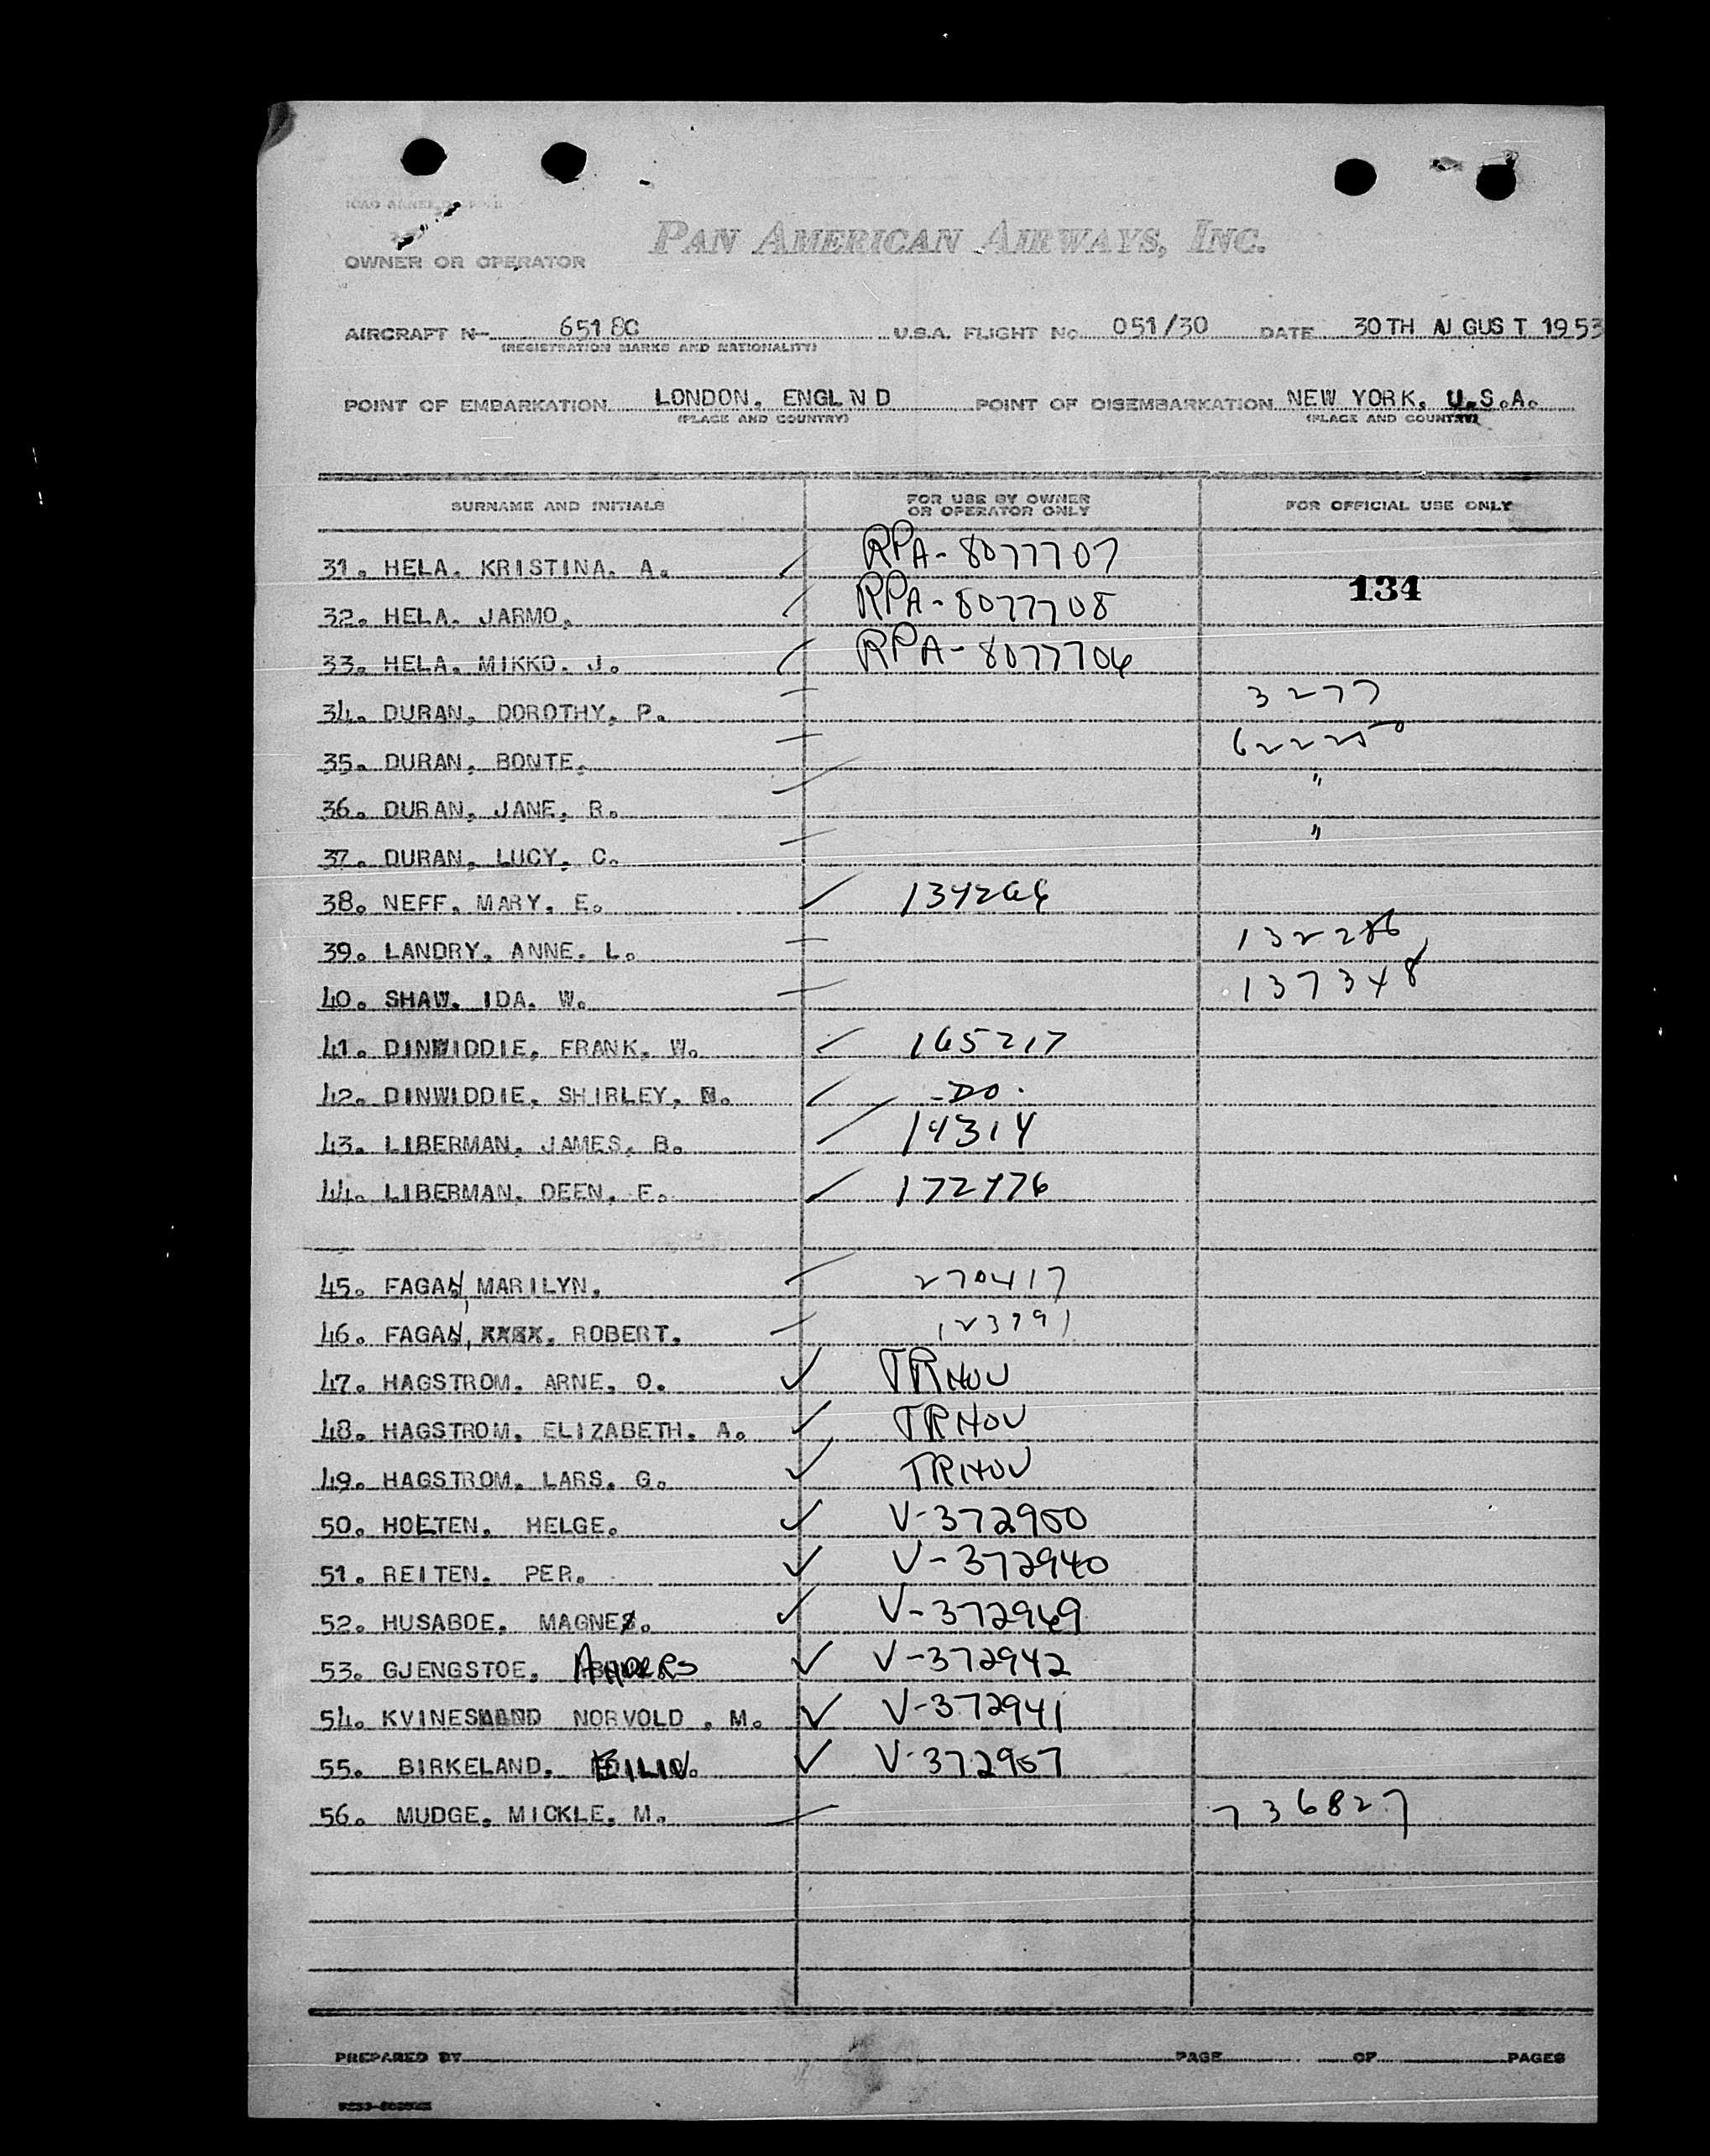 OWNER OR OPERATOR
PAN AMERICAN AIRWAYS, INC.
AIRCRAFT N- 6518C U.S.A. FLIGHT No. 051/30 DATE 30TH AUGUST 1953
(REGISTRATION MARKS AND NATIONALITY)
POINT OF EMBARKATION LONDON, ENGL N D POINT OF DISEMBARKATION NEW YORK, U.S.A.
(PLACE AND COUNTRY) (PLACE AND COUNTRY)
SURNAME AND INITIALS FOR USE BY OWNER OR OPERATOR ONLY FOR OFFICIAL USE ONLY
31. HELA. KRISTINA. A. RPA-8077707
134
32. HELA. JARMO. RPA-8077708
33. HELA. MIKKO. J. RPA-8077706
34. DURAN, DOROTHY, P. 3277
35. DURAN, BONTE. 622250
36. DURAN, JANE, R. "
37. DURAN, LUCY, C. "
38. NEFF. MARY, E.
39. LANDRY. ANNE. L.
40. SHAW. IDA. W. 137348
41. DINWIDDIE, FRANK. W. 165217
42. DINWIDDIE, SHIRLEY, -DO.
43. LIBERMAN, JAMES, B. 14314
44. LIBERMAN. DEEN, E. 172476
45. FAGAN, MARILYN. 270417
46. FAGAN, XXXX. ROBERT. 123791
47. HAGSTROM. ARNE, O. TRHOV
48. HAGSTROM. ELIZABETH. A. TRHOV
49. HAGSTROM. LARS. G. TRHOV
50. HOLTEN. HELGE. V-372950
51. REITEN. PER. V-372940
52. HUSABOE, MAGNE. V-372949
53. GJENGSTOE. ANDERS V-372942
54. KVINESLAND NORVOLD, M. V-372941
55. BIRKELAND. EILIV. V-372957
56. MUDGE. MICKLE. M. 736827
PREPARED BY PAGE OF PAGES